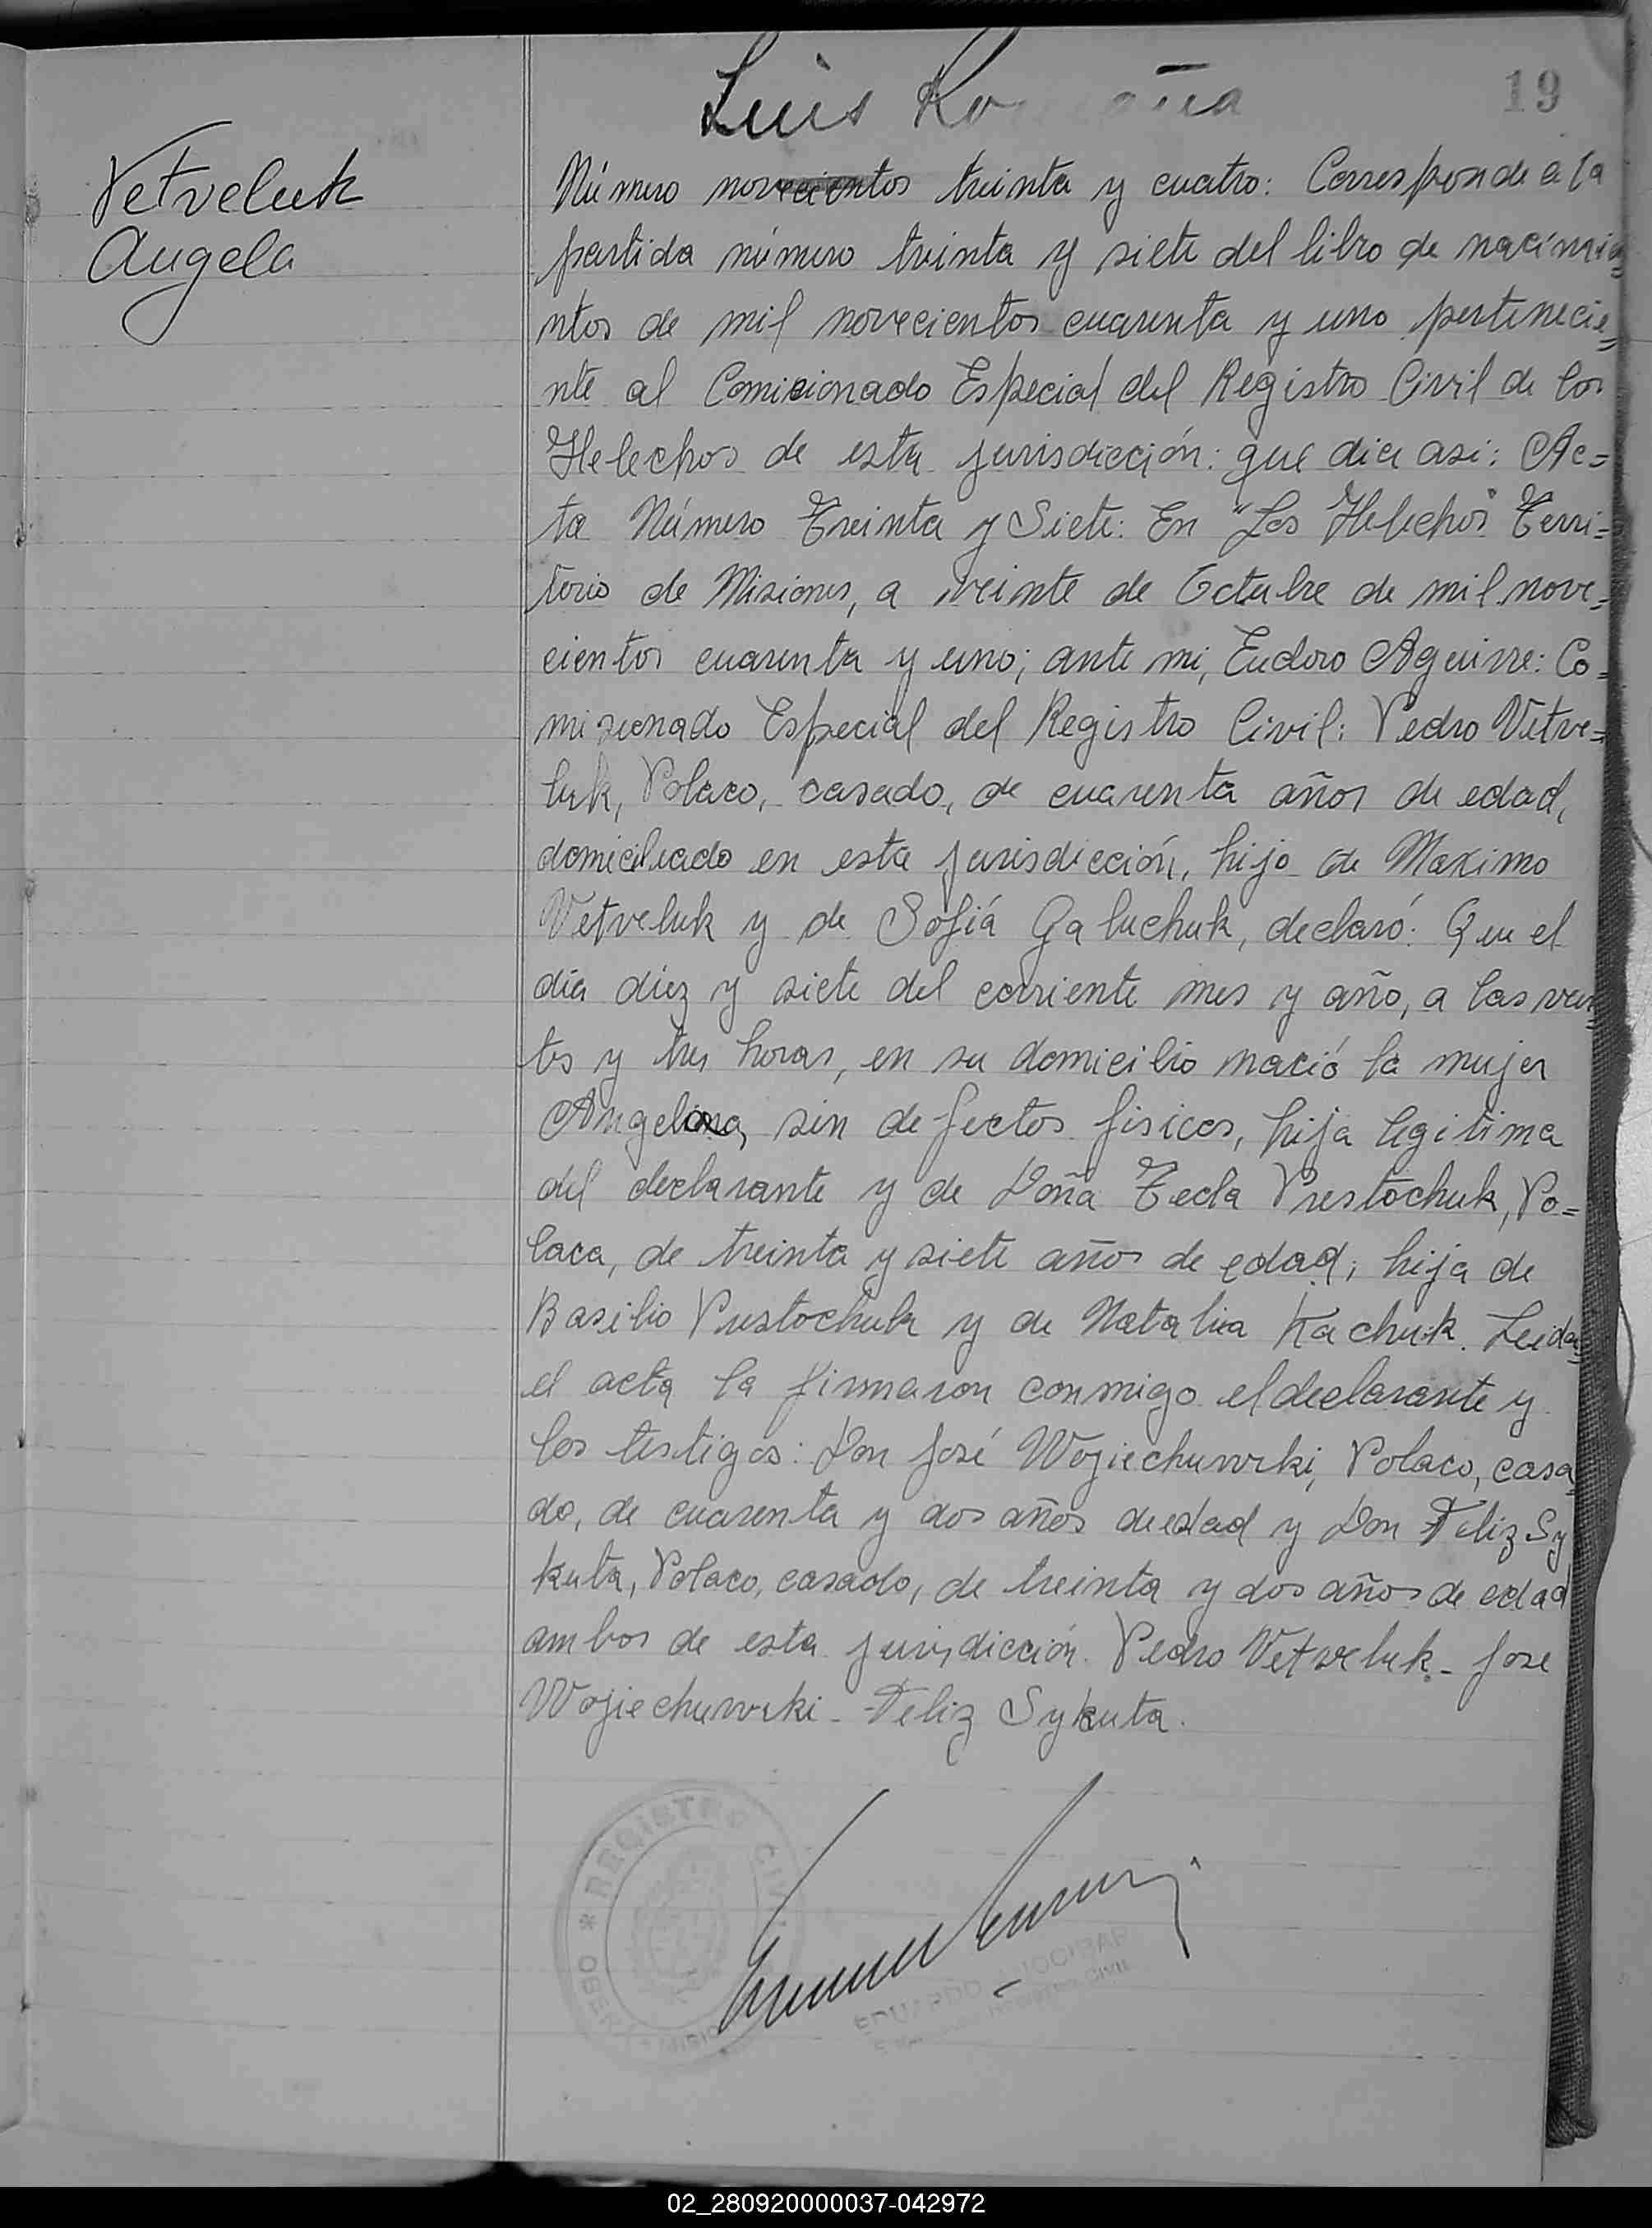 Luis
19
Vetveluk
Angela
Número novecientos treinta y cuatro: Corresponde a la
partida número treinta y siete del libro de nacimie=
ntos de mil novecientos cuarenta y uno pertenecie=
nte al Comisionado Especial del Registro Civil de Los
Helechos de esta jurisdicción: que dice asi: Ac=
ta Número Treinta y Siete: En "Los Helechos" Terri=
torio de Misiones, a veinte de Octubre de mil nove=
cientos cuarenta y uno; ante mi, Eudoro Aguirre: Co=
misionado Especial del Registro Civil: Pedro Vetve=
luk, Polaco, casado, de cuarenta años de edad,
domiciliado en esta jurisdicción, hijo de Maximo
Vetveluk y de Sofiá Galuchuk, declaró: Que el
día diez y siete del corriente mes y año, a las vein=
tes y tres horas, en su domicilio nació la mujer
sin defectos fisicos, hija legitima
del declarante y de Doña Tecla Prestochuk, Po=
laca, de treinta y siete años de edad; hija de
Basilio Prustochuk y de Natalia Kachuk. Leida=
el acta la firmaron conmigo el declarante y
los testigos: Don José Wojiechuwrki, Polaco, casa=
do, de cuarenta y dos años de edad y Don Feliz Sy
kuta, Polaco, casado, de treinta y dos años de edad
ambos de esta jurisdicción. Pedro Vetveluk - Jose
Wojiechuwrki - Feliz Sykuta.
REGISTRO CIVIL
OBERA
EDUARDO
CIVIL
02_280920000037-042972